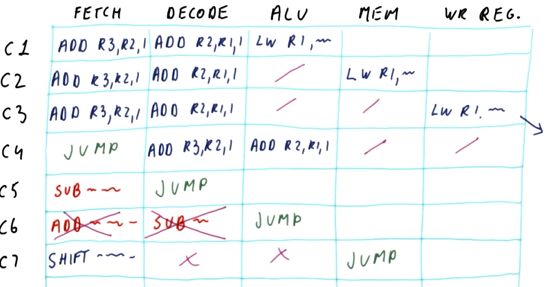 FETCH DECODE ALU MEM WR REG.
C1 ADD R3,R2,1 ADD R2,R1,1 LW R1,~
C2 ADD R3,R2,1 ADD R2,R1,1 / LW R1,~
C3 ADD R3,R2,1 ADD R2,R1,1 / / LW R1,~
C4 JUMP ADD R3,R2,1 ADD R2,R1,1 / /
C5 SUB ~~ JUMP
C6 ADD ~~- SUB ~ JUMP
C7 SHIFT ~~- X X JUMP